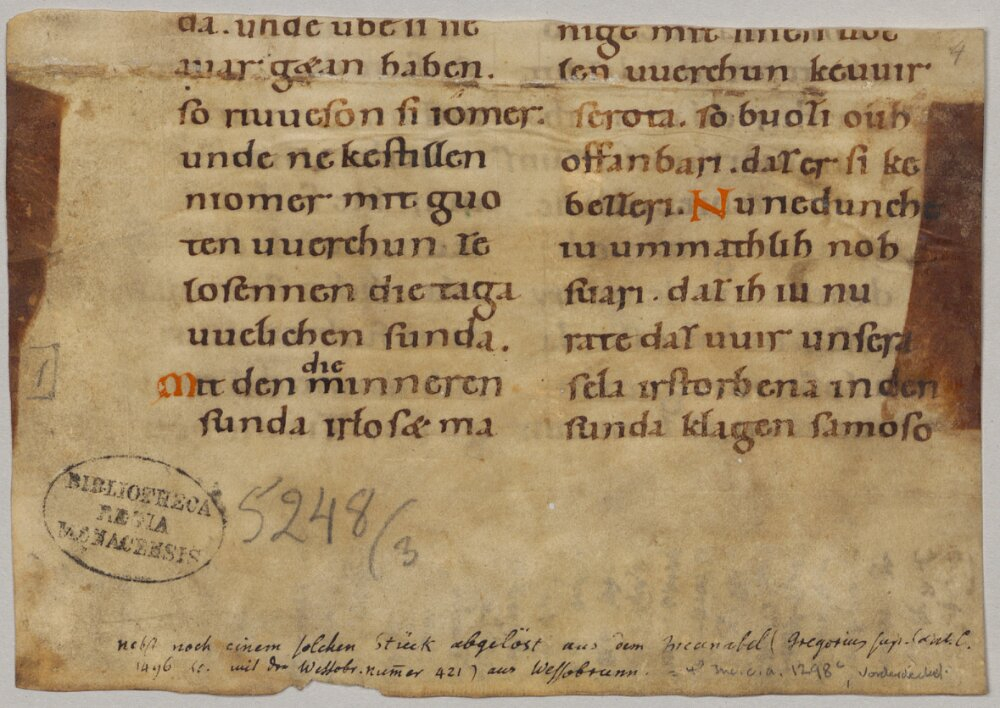 da. unde ube si ne
auar gęan haben.
so riuueson si iomer.
unde ne kestillen
niomer mit guo
ten uuerchun ze
losennen die taga
uuelichen sunda.
die
Mit den minneren
sunda irlosæ ma
nige mit iinen ube
len uuerchun keuuir
serota. so buozi oùh
offanbari. daz er si ke
bezzeri. Nu ne dunche
iu ummathlih noh
suari. daz ih iu nu
rate daz uuir unsera
sela irstorbena in den
sunda klagen samo so
4
[1]
BIBLIOTHECA
REGIA
MONACENSIS
5248(3
nebst noch einem solchen Stück abgelöst aus dem Incunabel (Gregorius sup.
1496 mit der Wessobr. numer 421) aus Wessobrunn. = 4° Inc. c. a. 1298 c, Vorderdeckel.